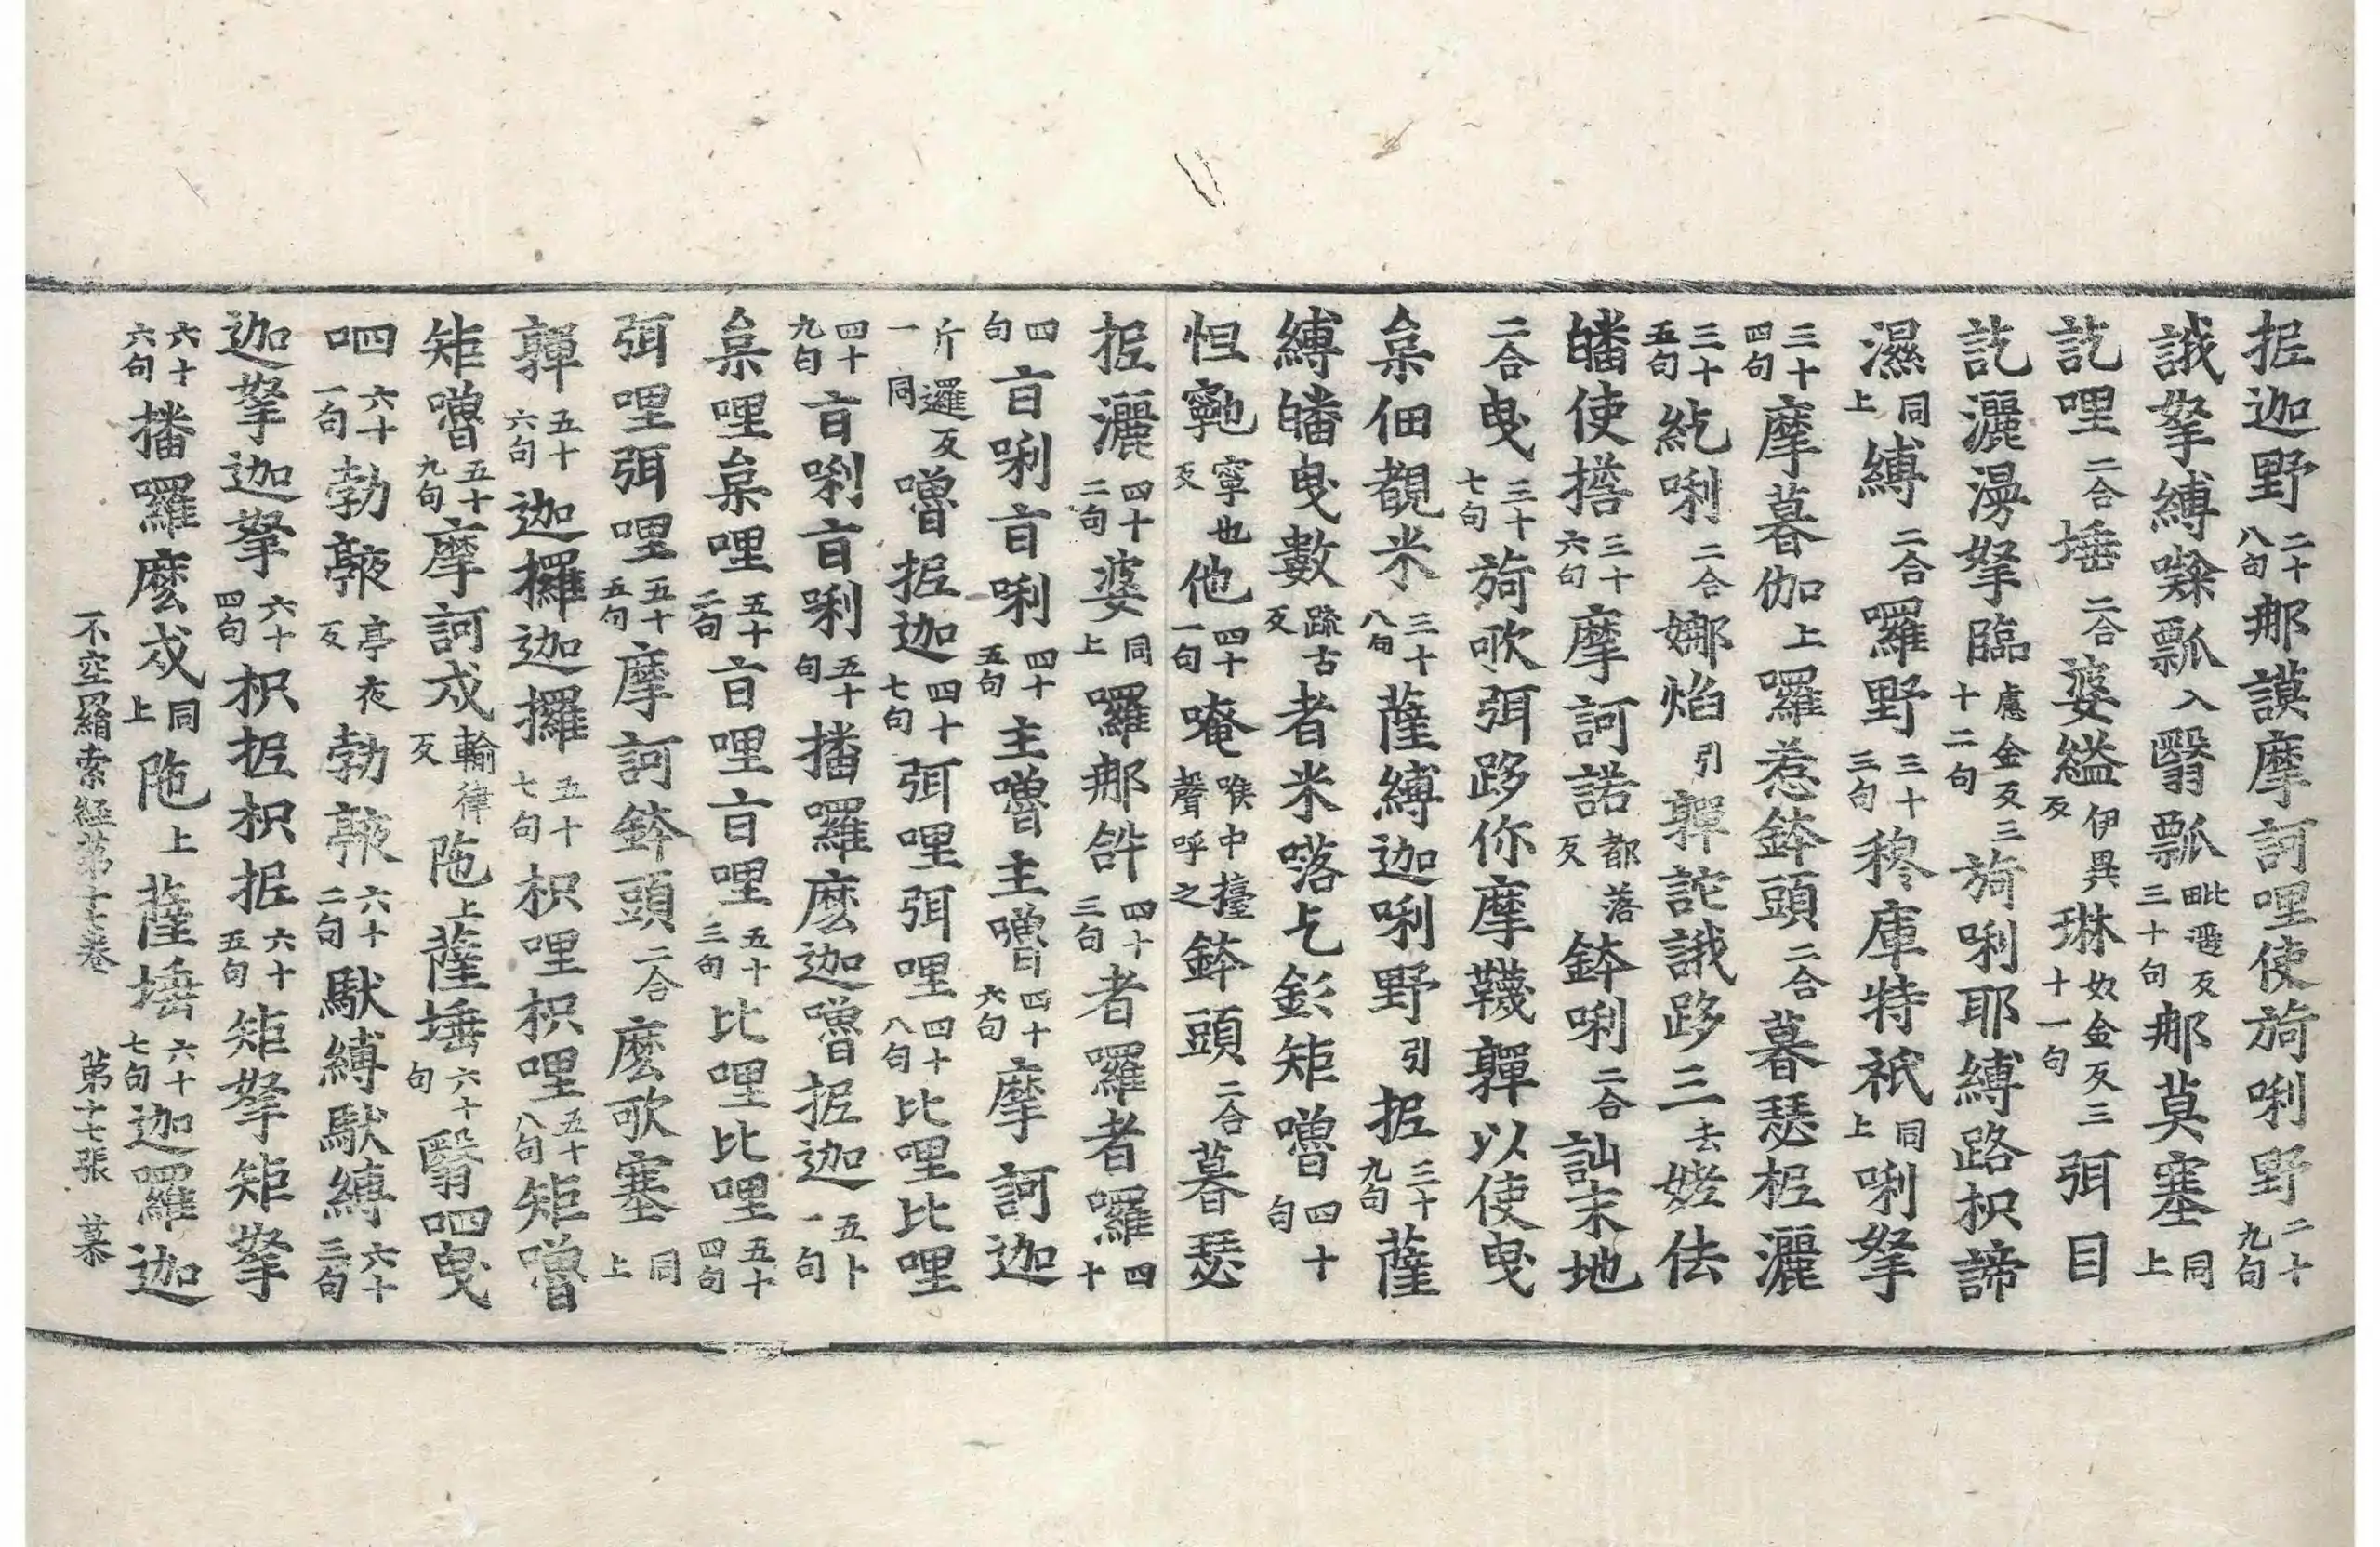 抳迦野二十八句那謨摩訶哩使㫊唎野二十九句
誐拏縛㘑瓢入翳瓢毗遥反三十句那莫塞同上
訖哩二合埵二合婆縊伊異反琳奴金反三十一句弭目
訖灑漫拏臨慮金反三十二句㫊唎耶縛路枳諦
濕同上縛二合囉野三十三句稌庫特祇同上唎拏
三十四句摩暮伽上囉惹鉢頭二合暮瑟抳灑
三十五句紇唎二合娜焰引嚲詑誐跢三去姥佉
皤使㨋三十六句摩訶諾都落反鉢唎二合訕末地
二合曳三十七句㫊歌弭跢你摩韈嚲以使曳
枲佃覩米三十八句薩縛迦唎野引抳三十九句薩
縛皤曳數䟽古反者米㗨乞彭矩嚕四十句
怛寧也寧也反他四十一句唵喉中擡聲呼之鉢頭二合暮瑟
抳灑四十二句婆同上囉那䛗四十三句者囉者囉四十
四句旨唎旨唎四十五句主嚕主嚕四十六句摩訶迦
斤邏反一同嚕抳迦四十七句弭哩弭哩四十八句比哩比哩
四十九句旨唎旨唎五十句播囉麽迦嚕抳迦五十一句
枲哩枲哩五十二句旨哩旨哩五十三句比哩比哩五十四句
弭哩弭哩五十五句摩訶鉢頭二合麽歌塞同上
嚲五十六句迦攞迦攞五十七句枳哩枳哩五十八句矩嚕
矩嚕五十九句摩訶戍輸律反陁上薩埵六十句翳呬曳
呬六十一句勃㰠亭夜反勃㰠六十二句馱縛馱縛六十三句
迦拏迦拏六十四句枳抳枳抳六十五句矩拏矩拏
六十六句播囉麽戍同上陁上薩埵六十七句迦羅迦
不空羂索經第十七卷 第十七張 慕